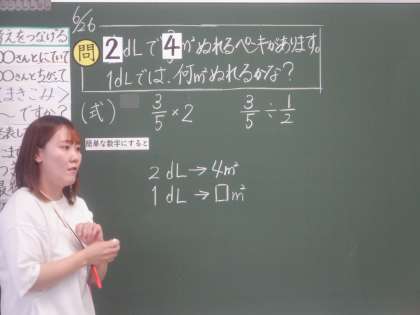 6/26
考えをつなげる
〇〇さんとにていて
〇〇さんとちがって
～ですか？
問 2dLで4m²ぬれるペンキがあります。
1dLでは、何m²ぬれるかな？
(式) 3/5×2 3/5÷1/2
簡単な数字にすると
2dL→4m²
1dL→□m²